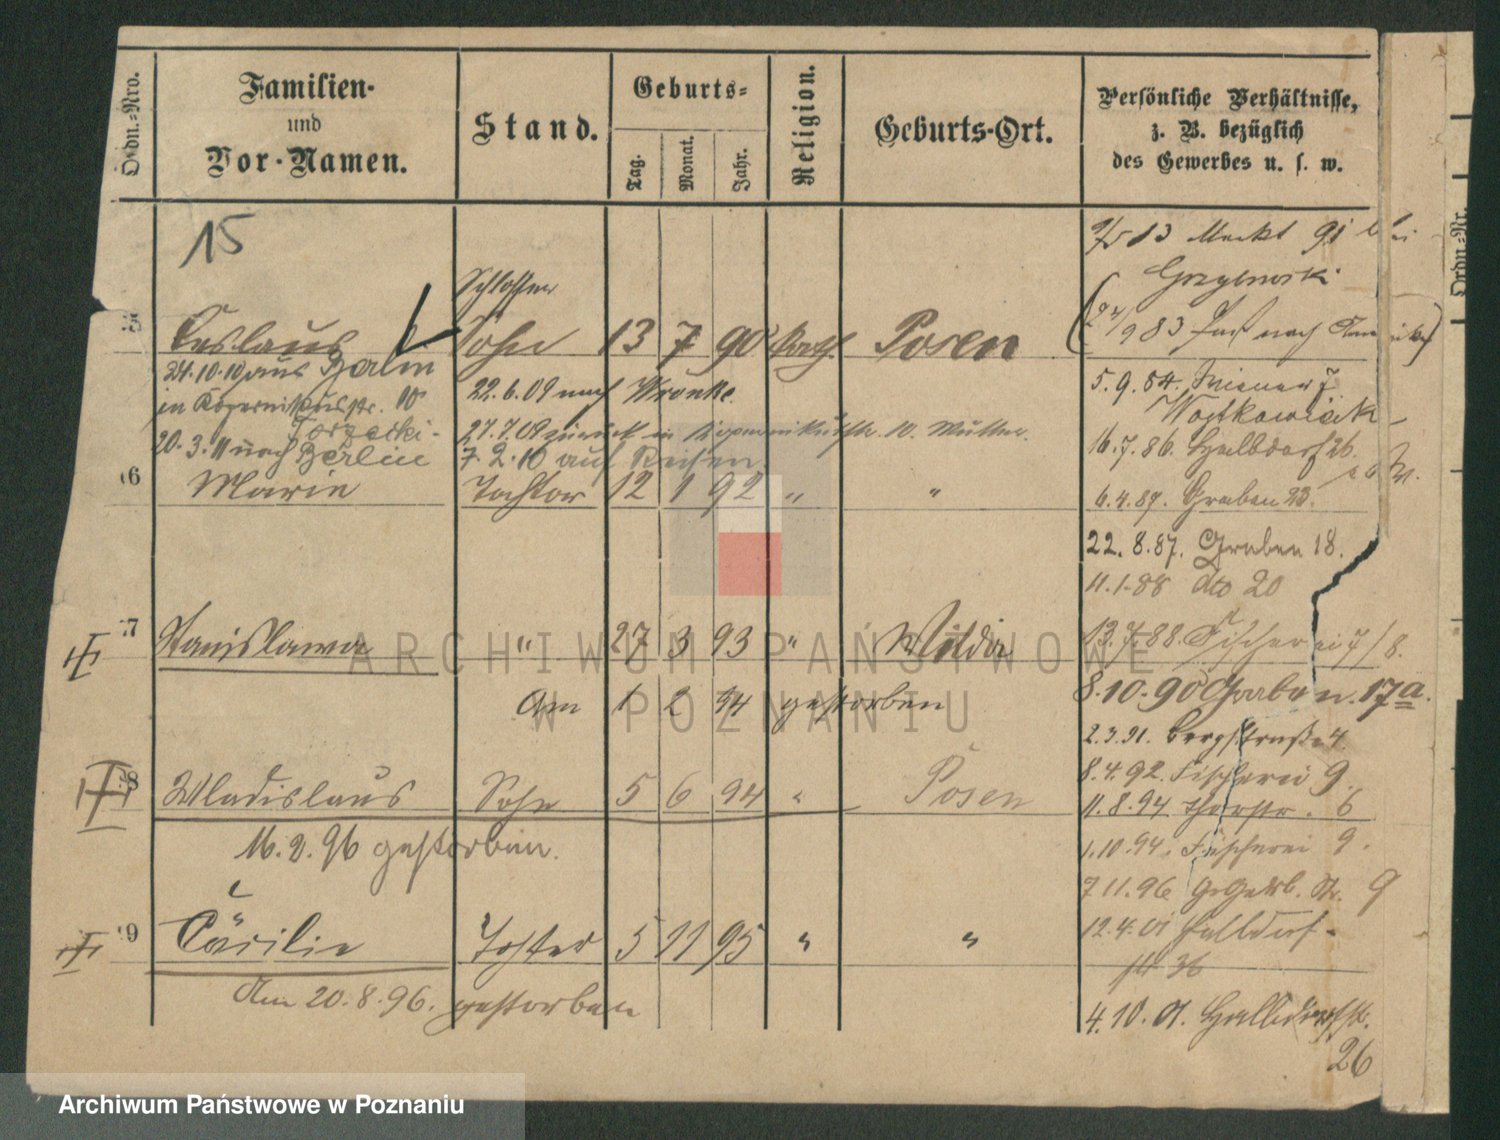 Ordn.-Nro.
Familien-
und
Vor-Namen.
Stand.
Geburts-
Tag.
Monat.
Jahr.
Religion.
Geburts-Ort.
Persönliche Verhältnisse,
z. B. bezüglich
des Gewerbes u. s. w.
Ordn.-Nr.
15
13 Markt 91 bei
Schlosser
Ceslaus Sohn 13 7 90 kath. Posen
24.10.10 aus Berlin
in Kopernikusstr. 10
22.6.09 nach Wronke.
5.9.84.
27.7.09 zurück in Kopernikusstr. 10. Mutter.
20.3.11 nach Berlin
7.2.10 auf Reisen
16.7.86. Halbdorf 26.
6 Marie Tochter 12 1 92 " "
6.4.87. Graben 23.
22.8.87. Graben 18.
11.1.88 dto 20
7 Stanislawa " 27 3 93 " Wilda
13.7.88. Fischerei 7/8.
Am 1 2 94 gestorben
8.10.90 Graben 17a.
2.3.91. Bergstraße 4.
8 Wladislaus Sohn 5 6 94 " Posen
8.4.92. Fischerei 9.
11.8.94 Thorstr. 6
16.2.96 gestorben.
1.10.94. Fischerei 9.
7.11.96 Str. 9
9 Cäcilie Tochter 5 11 95 " "
12.4.01 Halbdorf-
str 36
Am 20.8.96. gestorben
4.10.01. Halbdorfstr.
26
ARCHIWUM PAŃSTWOWE
W POZNANIU
Archiwum Państwowe w Poznaniu